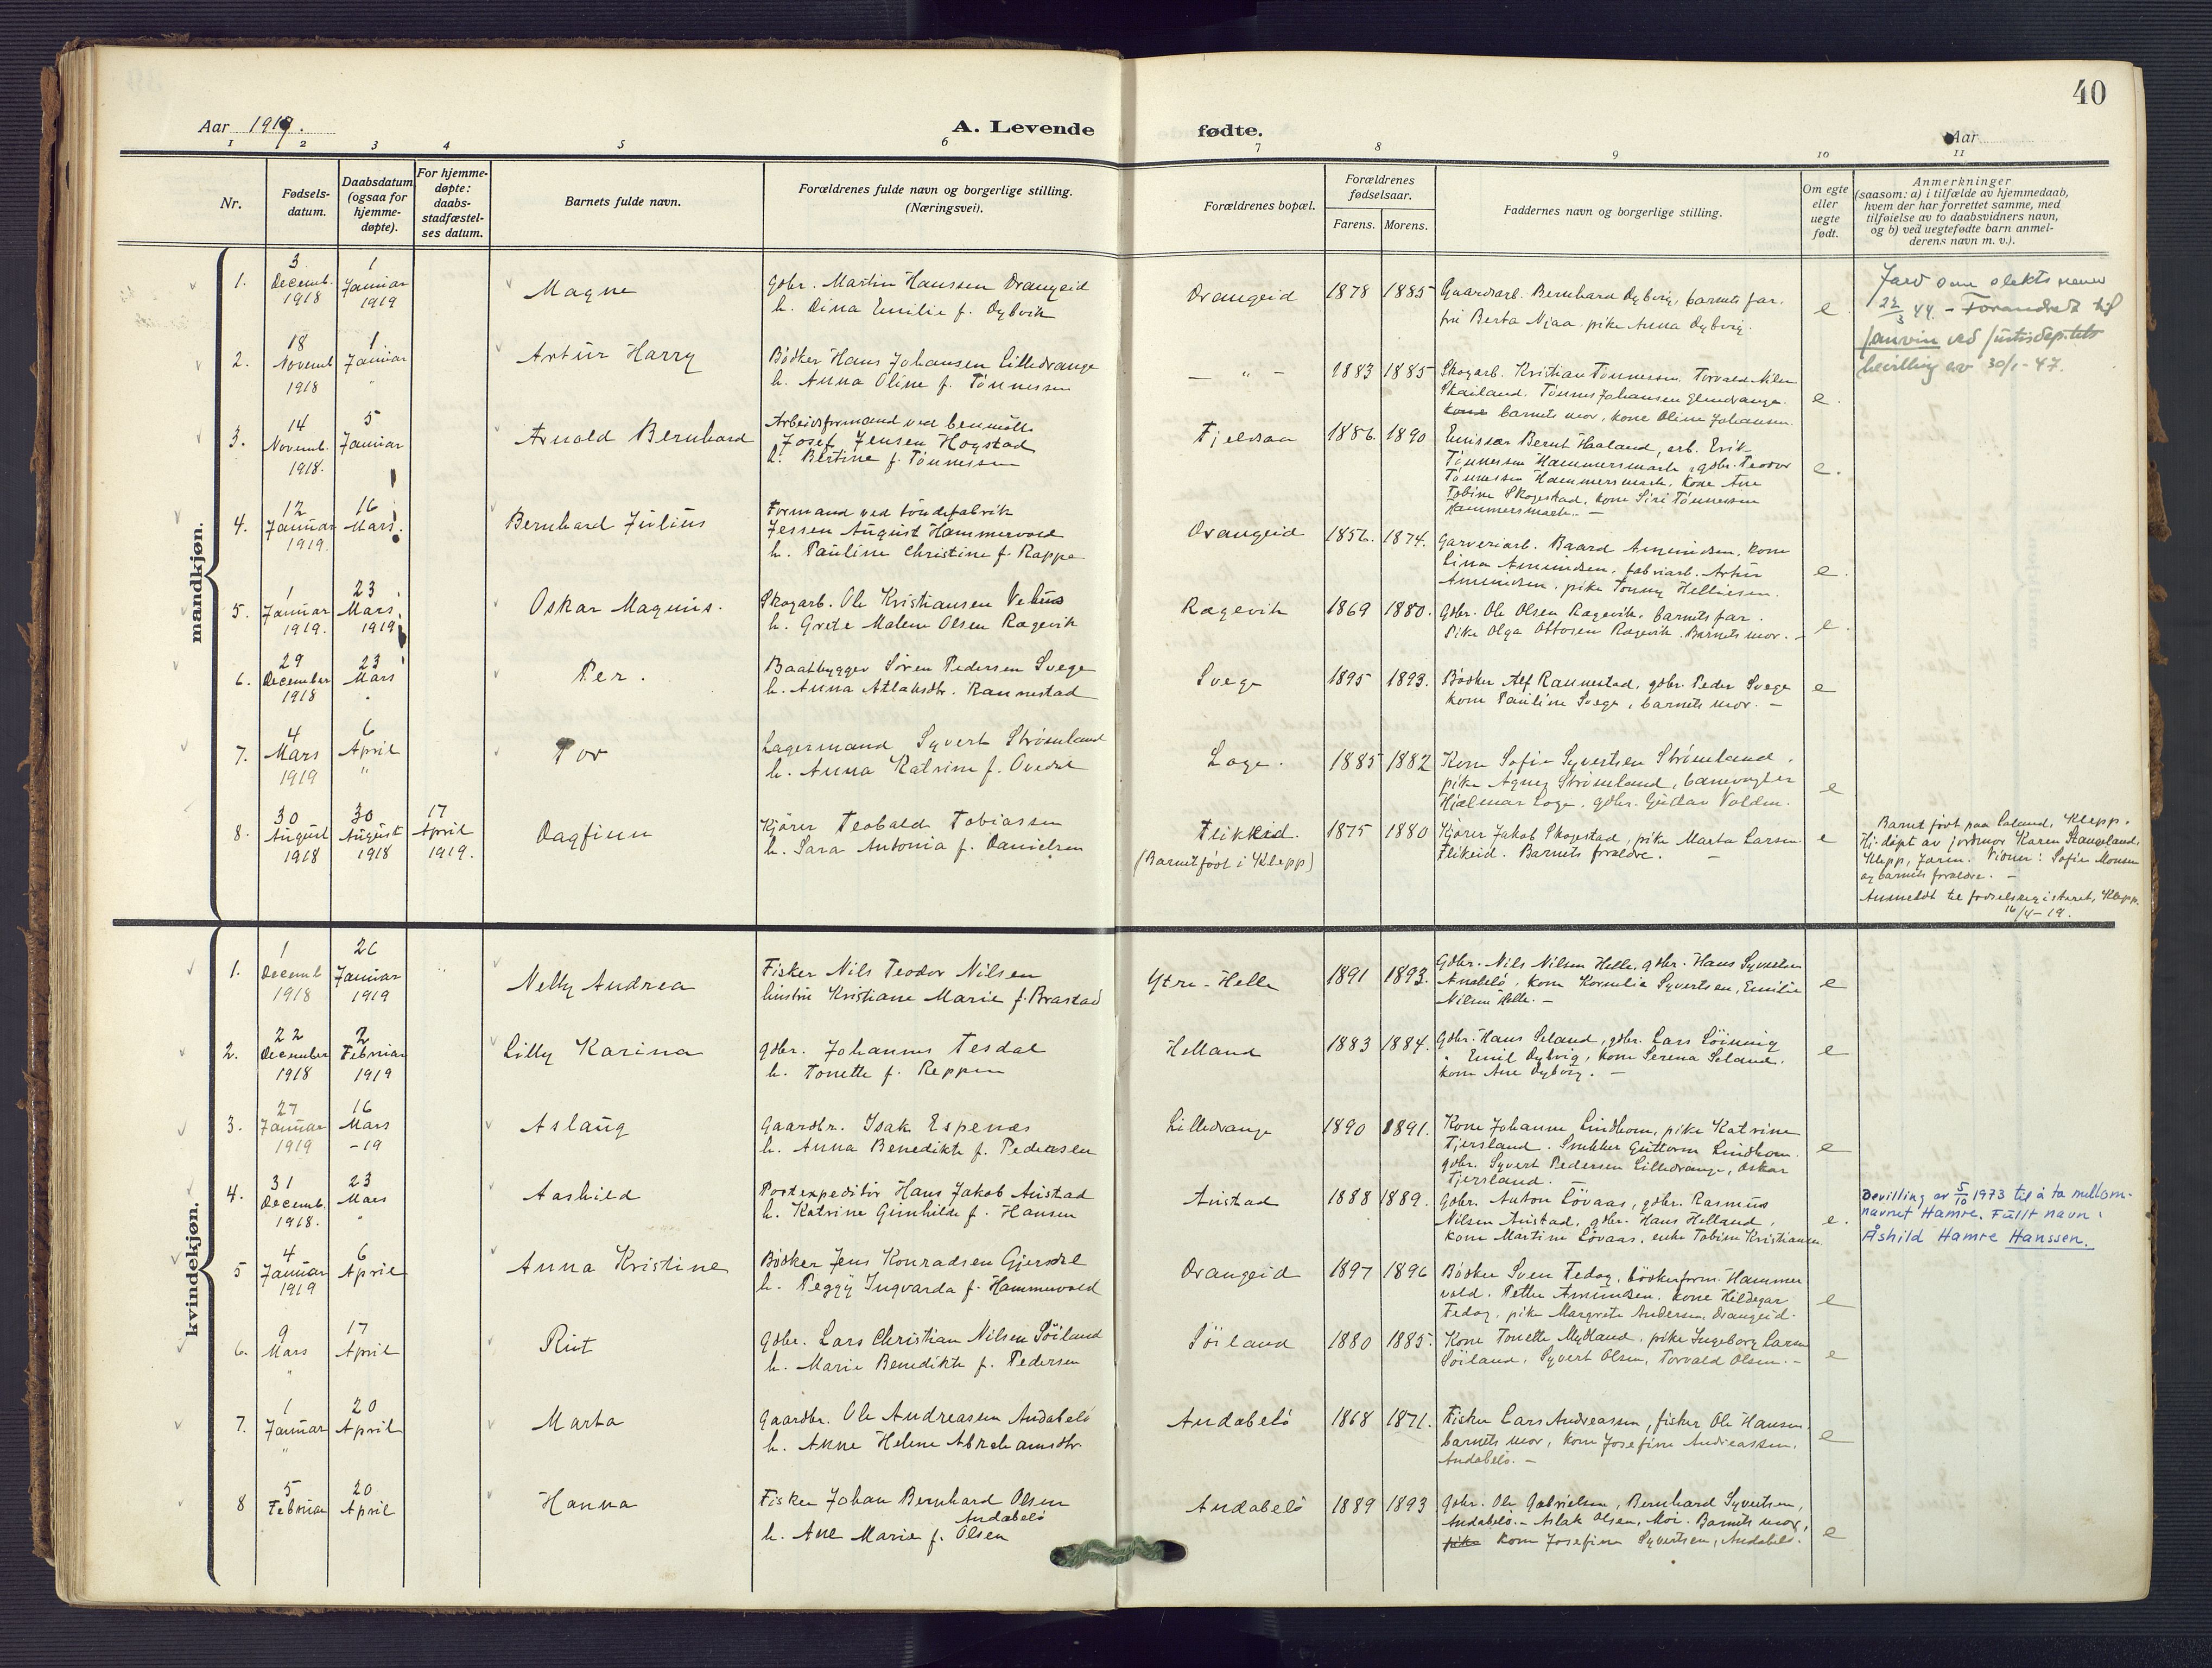 40
Aar 1919.
A. Levende fødte.
Aar
1 2 3 4 5 6 7 8 9 10 11
Nr.
Fødsels-
datum.
Daabsdatum
(ogsaa for
hjemme-
døpte).
For hjemme-
døpte:
daabs-
stadfæstel-
ses datum.
Barnets fulde navn.
Forældrenes fulde navn og borgerlige stilling.
(Næringsvei).
Forældrenes bopæl.
Forældrenes
fødselsaar.
Farens. Morens.
Faddernes navn og borgerlige stilling.
Om egte
eller
uegte
født.
Anmerkninger
(saasom: a) i tilfælde av hjemmedaab,
hvem der har forrettet samme, med
tilføielse av to daabsvidners navn,
og b) ved uegtefødte barn anmel-
derens navn m. v.).
mandkjøn.
1.
3
Decemb.
1918
1
Januar
1919
Magne
gdbr. Martin Hanssen Drangeid
h. Dina Emilie f. Dybvik
Drangeid
1878 1885
Gaardarb. Bernhard Dybvig, barnets far.
fru Berta Njaa. pike Anna Dybvig.
e
som slekts navn
22/3 44. - Forandret til
ved Justisdep.tets
bevilling av 30/1-47.
2.
18
Novemb
1918
1
Januar
"
Artur Harry
Bødker Hans Johansen Lilledrange
h. Anna Oline f. Tønnessen
— " —
1883 1885
Skogarb. Kristian Tønnessen, Torvald Nilsen
Skailand. Tønnes Johansen
kone barnets mor, kone Oline Johansen.
e.
3.
14
Novemb.
1918.
5
Januar
Arnold Bernhard
Arbeidsformand ved benmølle
Josef Jensen Hogstad
h. Bertine f. Tønnessen
Fjeldsaa
1886. 1890
Emissær Bernt Haaland, arb. Erik
Tønnessen Hammersmark, gdbr. Teodor
Tønnessen Hammersmark, kone Ane
Tobine Skogestad, kone Siri Tønnessen
Hammersmark. —
e.
4.
12
Januar
1919.
16
Mars
Bernhard Julius
Formand ved tøndefabrik
Jessen August Hammervold
h. Pauline Christine f. Rappe
Drangeid
1856. 1874.
Garveriarb. Baard Amundsen, kone
Lina Amundsen, fabriarb. Artur
Amundsen, pike Tonny Helliesen.
e.
5.
1
Januar
1919.
23
Mars
1919
Oskar Magnus.
Skogarb. Ole Kristiansen
h. Grete Malene Olsen Rægevik
Rægevik
1869 1880.
Gdbr. Ole Olsen Rægevik, barnets far.
Pike Olga Ottosen Rægevik. Barnets mor. —
e.
6.
29
December
1918
23
Mars
"
Per.
Baatbygger Søren Pedersen Svege
h. Anna Atlaksdtr. Rannestad
Svege
1895 1893.
Bødker Alf Rannestad, gdbr. Peder Svege
kone Pauline Svege, barnets mor. —
e
7.
4
Mars
1919
6
April
"
Tor
Lagermand Syvert Strømland
h. Anna Katrine f. Ovedal
Loge.
1885 1882
Kone Sofie Syvertsen Strømland,
pike Agnes Strømland, banevogter
Hjalmar Loge, gdbr. Gustav Voldm.
e
8.
30
August
1918
30
August
1918
17
April
1919.
Dagfinn
Kjører Teobald Tobiassen
h. Sara Antonia f. Danielsen
Flikkeid.
(Barnet født i Klepp)
1875 1880
Kjører Jakob Skogestad, pike Marta Larsen
Flikeid. Barnets forældre. —
e
Barnet født paa Laland, Klepp.
Hj. døpt av jordmor Karen Stangeland,
Klepp, Jæren. Vidner: Sofie Monsen
og barnets forældre. —
Anmeldt til fødselsregisteret, Klepp
16/4-19.
kvindekjøn.
1.
1
Decemb
1918
26
Januar
1919
Nelly Andrea
Fisker Nils Teodor Nilsen
hustru Kristiane Marie f. Brastad
Ytre-Helle
1891 1893.
Gdbr. Nils Nilsen Helle, gdbr. Hans Syvertsen
Anabelø, kone Kornelia Syvertsen, Emilie
Nilsen Helle. —
e
2.
22
December
1918
2
Februar
1919
Lilly Karina
gdbr. Johannes Tesdal
h. Tonette f. Reppen
Helland
1883 1884.
Gdbr. Hans Seland, gdbr. Lars Löining
" Emil Dybvig, kone Serena Seland.
kone Ane Dybvig. —
e
3.
27
Januar
1919
16
Mars
-19
Aslaug
Gaardbr. Isak Espenes
h. Anna Benedikte f. Pedersen
Lilledrange
1890 1891.
Kone Johanne Lindhom, pike Katrine
Fjersland. Snekker Guttorm Lindhom.
gdbr. Syvert Pedersen Lilledrange, Oskar
Fjersland. —
e
4.
31
Decemb.
1918.
23
Mars
"
Aashild
Postexpeditør Hans Jakob Anstad
h. Katrine Gunhilde f. Hansen
Anstad
1888 1889.
Gdbr. Anton Løvaas, gdbr. Rasmus
Nilsen Anstad, gdbr. Hans Helland,
kone Martine Løvaas, enke Tobine Kristiansen
e.
Bevilling av 5/10 1973 til å ta mellom-
navnet Hamre. Fullt navn:
Åshild Hamre Hanssen.
5
4
Januar
1919
6
April
Anna Kristine
Bødker Jens Konradsen Gjersdal
h. Peggy Ingvarda f. Hammervold
Drangeid
1897 1896
Bødker Sven Fedog, bødkerform. Hammer
vold. Petter Amundsen. kone Hildegar
Fedog, pike Margrete Andersen, Drangeid.
e
6.
9
Mars
"
17
April
Rut
Gdbr. Lars Christian Nilsen Søiland
h. Marie Benedikte f. Pedersen
Søiland
1880 1885.
Kone Tonette Mydland, pike Ingeborg Larsen
Søiland, Syvert Olsen, Torvald Olsen. —
e
7.
1
Januar
"
20
April
Marta
Gaardbr. Ole Andreassen Andabelø
h. Anne Helene Abrahamsdtr.
Andabelø
1868 1871.
Fisker Lars Andreassen, fisker Ole Hansen.
barnets mor, kone Josefine Andreassen,
Andabelø. —
e
8
5
Februar
20
April
Hanna
Fisker Johan Bernhard Olsen
Andabelø
h. Ane Marie f. Olsen
Andabelø
1889 1893
Gdbr. Ole Gabrielsen, Bernhard Syvertsen,
Andabelø. — Aslak Olsen, Moi. Barnets mor,
pike kone Josefine Syvertsen, Andabelø.
e